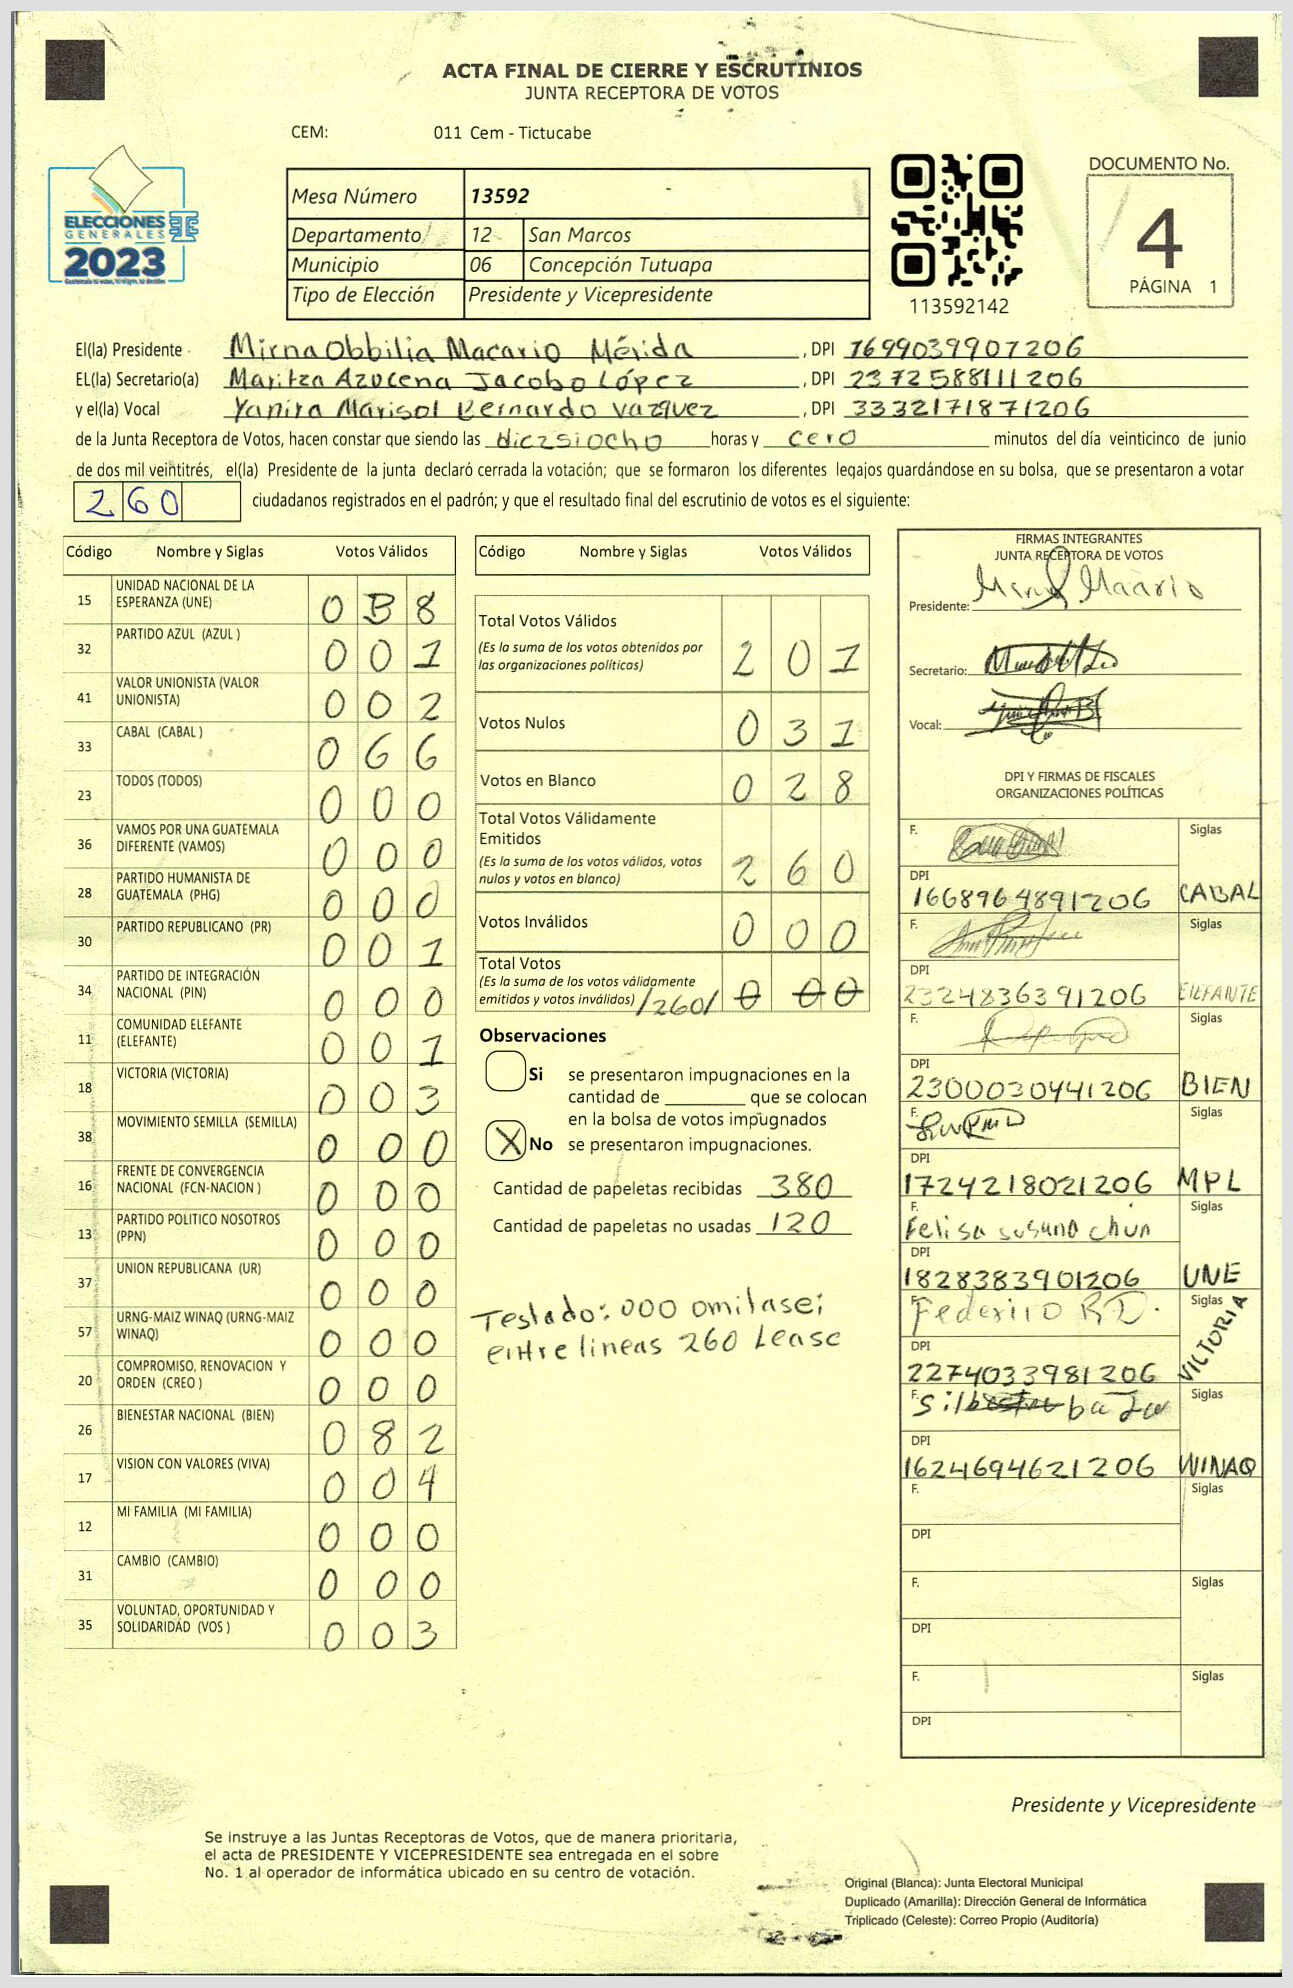 ACTA FINAL DE CIERRE Y ESCRUTINIOS
JUNTA RECEPTORA DE VOTOS
CEM: 011 Cem - Tictucabe
ELECCIONES
GENERALES
2023
Mesa Número 13592
Departamento 12 San Marcos
Municipio 06 Concepción Tutuapa
Tipo de Elección Presidente y Vicepresidente
113592142
DOCUMENTO No.
4
PÁGINA 1
El(la) Presidente Mirna Obbilia Macario Mérida, DPI 1699039907206
EL(la) Secretario(a) Maritza Azucena Jacobo López, DPI 2372588111206
y el(la) Vocal Yanira Marisol Bernardo Vazquez, DPI 3332171871206
de la Junta Receptora de Votos, hacen constar que siendo las diezsiocho horas y cero minutos del día veinticinco de junio
de dos mil veintitrés, el(la) Presidente de la junta declaró cerrada la votación; que se formaron los diferentes legajos guardándose en su bolsa, que se presentaron a votar
260 ciudadanos registrados en el padrón; y que el resultado final del escrutinio de votos es el siguiente:
Código Nombre y Siglas Votos Válidos
15 UNIDAD NACIONAL DE LA ESPERANZA (UNE) 0 3 8
32 PARTIDO AZUL (AZUL ) 0 0 1
41 VALOR UNIONISTA (VALOR UNIONISTA) 0 0 2
33 CABAL (CABAL ) 0 6 6
23 TODOS (TODOS) 0 0 0
36 VAMOS POR UNA GUATEMALA DIFERENTE (VAMOS) 0 0 0
28 PARTIDO HUMANISTA DE GUATEMALA (PHG) 0 0 0
30 PARTIDO REPUBLICANO (PR) 0 0 1
34 PARTIDO DE INTEGRACIÓN NACIONAL (PIN) 0 0 0
11 COMUNIDAD ELEFANTE (ELEFANTE) 0 0 1
18 VICTORIA (VICTORIA) 0 0 3
38 MOVIMIENTO SEMILLA (SEMILLA) 0 0 0
16 FRENTE DE CONVERGENCIA NACIONAL (FCN-NACION ) 0 0 0
13 PARTIDO POLITICO NOSOTROS (PPN) 0 0 0
37 UNION REPUBLICANA (UR) 0 0 0
57 URNG-MAIZ WINAQ (URNG-MAIZ WINAQ) 0 0 0
20 COMPROMISO, RENOVACION Y ORDEN (CREO ) 0 0 0
26 BIENESTAR NACIONAL (BIEN) 0 8 2
17 VISION CON VALORES (VIVA) 0 0 4
12 MI FAMILIA (MI FAMILIA) 0 0 0
31 CAMBIO (CAMBIO) 0 0 0
35 VOLUNTAD, OPORTUNIDAD Y SOLIDARIDAD (VOS ) 0 0 3
Código Nombre y Siglas Votos Válidos
Total Votos Válidos
(Es la suma de los votos obtenidos por
las organizaciones políticas) 2 0 1
Votos Nulos 0 3 1
Votos en Blanco 0 2 8
Total Votos Válidamente
Emitidos
(Es la suma de los votos válidos, votos
nulos y votos en blanco) 2 6 0
Votos Inválidos 0 0 0
Total Votos
(Es la suma de los votos válidamente
emitidos y votos inválidos) /260/ 0 0 0
Observaciones
Si se presentaron impugnaciones en la
cantidad de ________ que se colocan
en la bolsa de votos impugnados
X No se presentaron impugnaciones.
Cantidad de papeletas recibidas 380
Cantidad de papeletas no usadas 120
Testado: 000 omitase;
entre lineas 260 Lease
FIRMAS INTEGRANTES
JUNTA RECEPTORA DE VOTOS
Presidente:
Secretario:
Vocal:
DPI Y FIRMAS DE FISCALES
ORGANIZACIONES POLÍTICAS
F. Siglas
DPI
1668964891206 CABAL
F. Siglas
DPI
2324836391206 ElEFANTE
F. Siglas
DPI
2300030441206 BIEN
F. Siglas
DPI
1724218021206 MPL
F. Siglas
Felisa susana chun
DPI
1828383901206 UNE
F. Siglas
Federico R.D.
DPI
2274033981206 VICTORIA
F. Siglas
DPI
1624694621206 WINAQ
F. Siglas
DPI
F. Siglas
DPI
F. Siglas
DPI
Presidente y Vicepresidente
Se instruye a las Juntas Receptoras de Votos, que de manera prioritaria,
el acta de PRESIDENTE Y VICEPRESIDENTE sea entregada en el sobre
No. 1 al operador de informática ubicado en su centro de votación.
Original (Blanca): Junta Electoral Municipal
Duplicado (Amarilla): Dirección General de Informática
Triplicado (Celeste): Correo Propio (Auditoría)